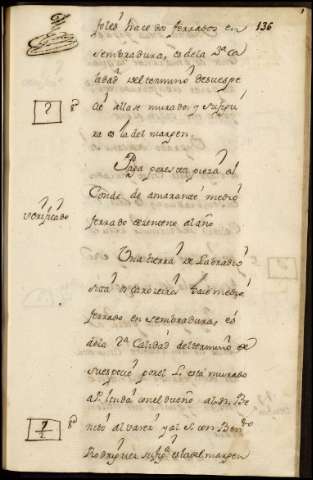 136
foles hace dos ferrados en
sembradura, es dela 3ª Ca
lidad del termino de suespe
cie allase murado, y su figu
ra es la del margen.
Paga por esta pieza al
Conde de amarante medio
ferrado de centeno al año
verificado
Una tierra de Labradio
sita hace medio
ferrado en sembradura, es
dela 2ª Calidad del termino de
su especie por el L. está murado
al P. linda con el dueño al N. Be
nito alvarez y al S. con Benᵗᵒ
Rodriguez su figª es la del margen